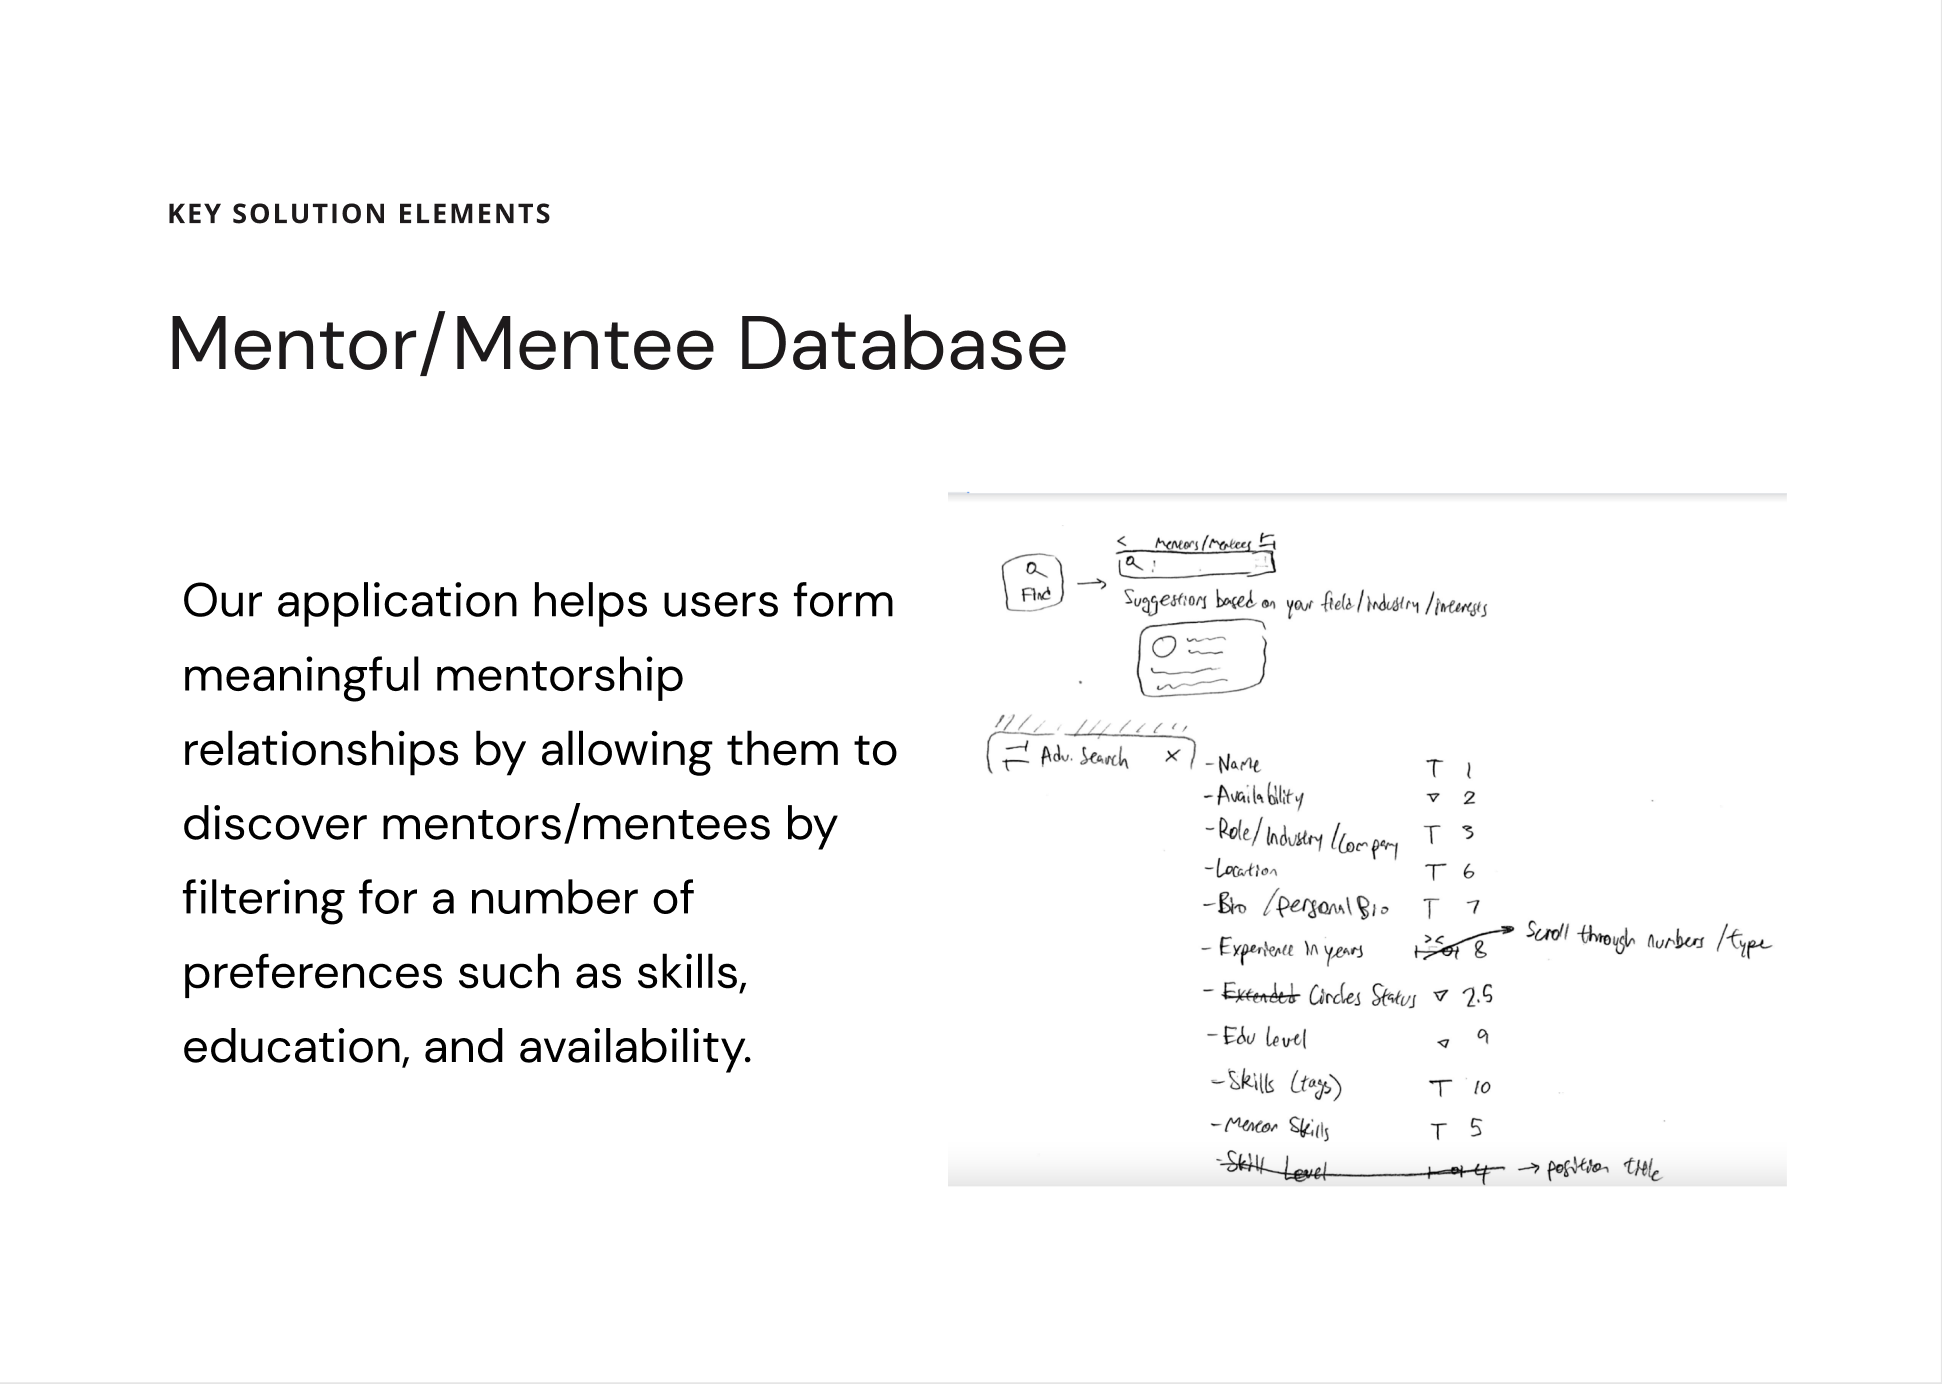 KEY SOLUTION ELEMENTS
Mentor/Mentee Database
Our application helps users form
meaningful mentorship
relationships by allowing them to
discover mentors/mentees by
filtering for a number of
preferences such as skills,
education, and availability.
< Mentors/Mentees
Find →
Suggestions based on your field/industry/interests
Adv. Search X
-Name T 1
-Availability ▽ 2
-Role/Industry/Company T 3
-Location T 6
-Bio /personal Bio T 7
- Experience in years 8 → Scroll through numbers /type
- Extended Circles Status ▽ 2.5
-Edu level ▽ 9
-Skills (tags) T 10
-Mentor Skills T 5
-Skill Level 4 → position title